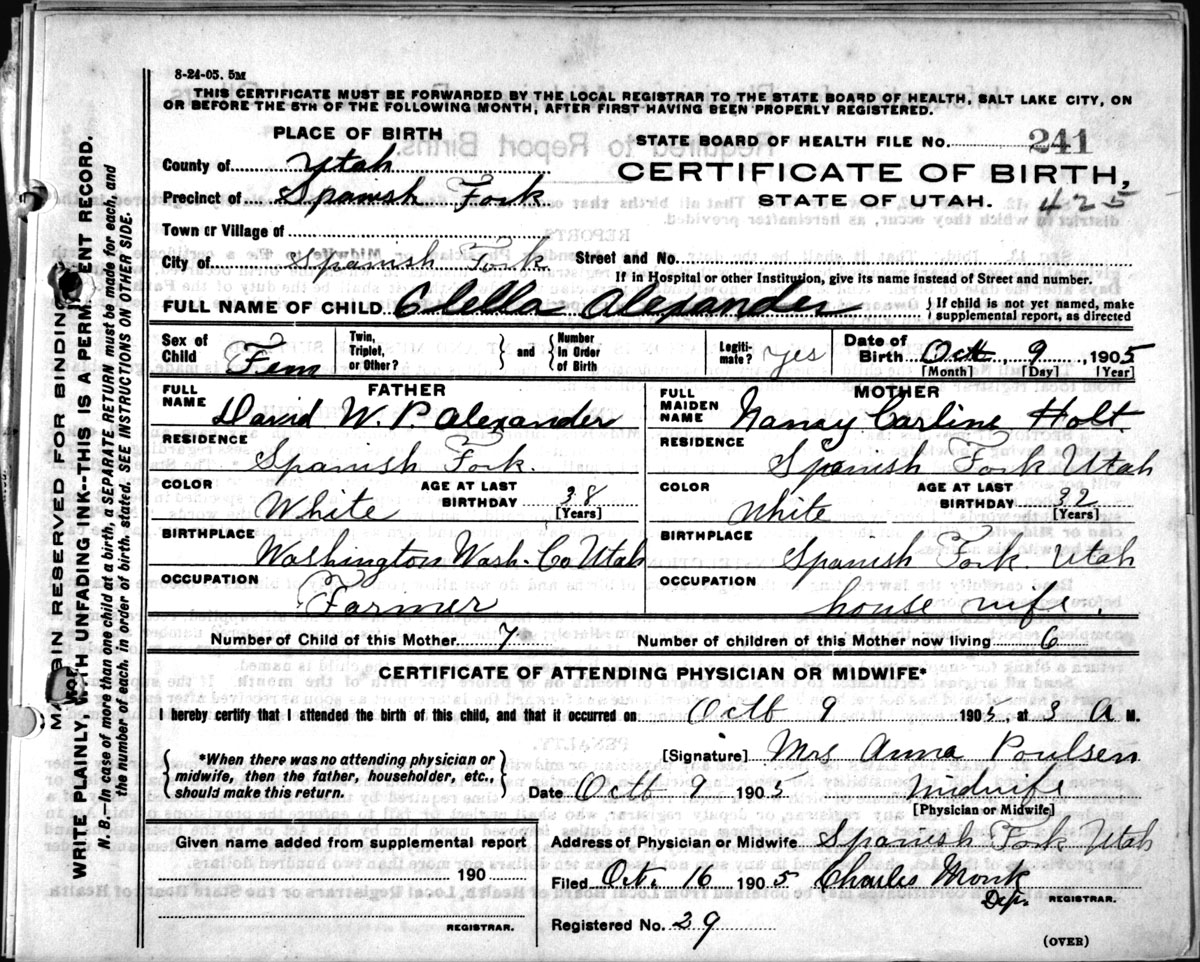 8-24-05. 5M
THIS CERTIFICATE MUST BE FORWARDED BY THE LOCAL REGISTRAR TO THE STATE BOARD OF HEALTH, SALT LAKE CITY, ON
OR BEFORE THE 5TH OF THE FOLLOWING MONTH, AFTER FIRST HAVING BEEN PROPERLY REGISTERED.
PLACE OF BIRTH
STATE BOARD OF HEALTH FILE No. 241
County of Utah
CERTIFICATE OF BIRTH,
Precinct of Spanish Fork
STATE OF UTAH. 425
Town or Village of
City of Spanish Fork Street and No.
If in Hospital or other Institution, give its name instead of Street and number.
FULL NAME OF CHILD Clella Alexander } If child is not yet named, make supplemental report, as directed
Sex of Child Fem Twin, Triplet, or Other? } and { Number in Order of Birth Legiti-mate? yes Date of Birth Oct. 9, 1905
[Month] [Day] [Year]
FATHER MOTHER
FULL NAME David W. P. Alexander FULL MAIDEN NAME Nancy Carline Holt.
RESIDENCE RESIDENCE
Spanish Fork. Spanish Fork Utah
COLOR White AGE AT LAST BIRTHDAY 38 [Years] COLOR White AGE AT LAST BIRTHDAY 32 [Years]
BIRTHPLACE BIRTHPLACE
Washington Wash. Co Utah Spanish Fork. Utah
OCCUPATION OCCUPATION
Farmer house wife.
Number of Child of this Mother 7 Number of children of this Mother now living 6
CERTIFICATE OF ATTENDING PHYSICIAN OR MIDWIFE*
I hereby certify that I attended the birth of this child, and that it occurred on Octb 9 1905, at 3 A M.
{ *When there was no attending physician or midwife, then the father, householder, etc., should make this return. }
[Signature] Mrs Anna Poulsen
Date Octb 9 1905 Midwife
[Physician or Midwife]
Given name added from supplemental report
190
REGISTRAR.
Address of Physician or Midwife Spanish Fork Utah
Filed Oct. 16 1905 Charles Monk
Dep. REGISTRAR.
Registered No. 29
(OVER)
MARGIN RESERVED FOR BINDING
WRITE PLAINLY WITH UNFADING INK--THIS IS A PERMANENT RECORD.
N. B.--In case of more than one child at a birth, a SEPARATE RETURN must be made for each, and
the number of each, in order of birth, stated. SEE INSTRUCTIONS ON OTHER SIDE.